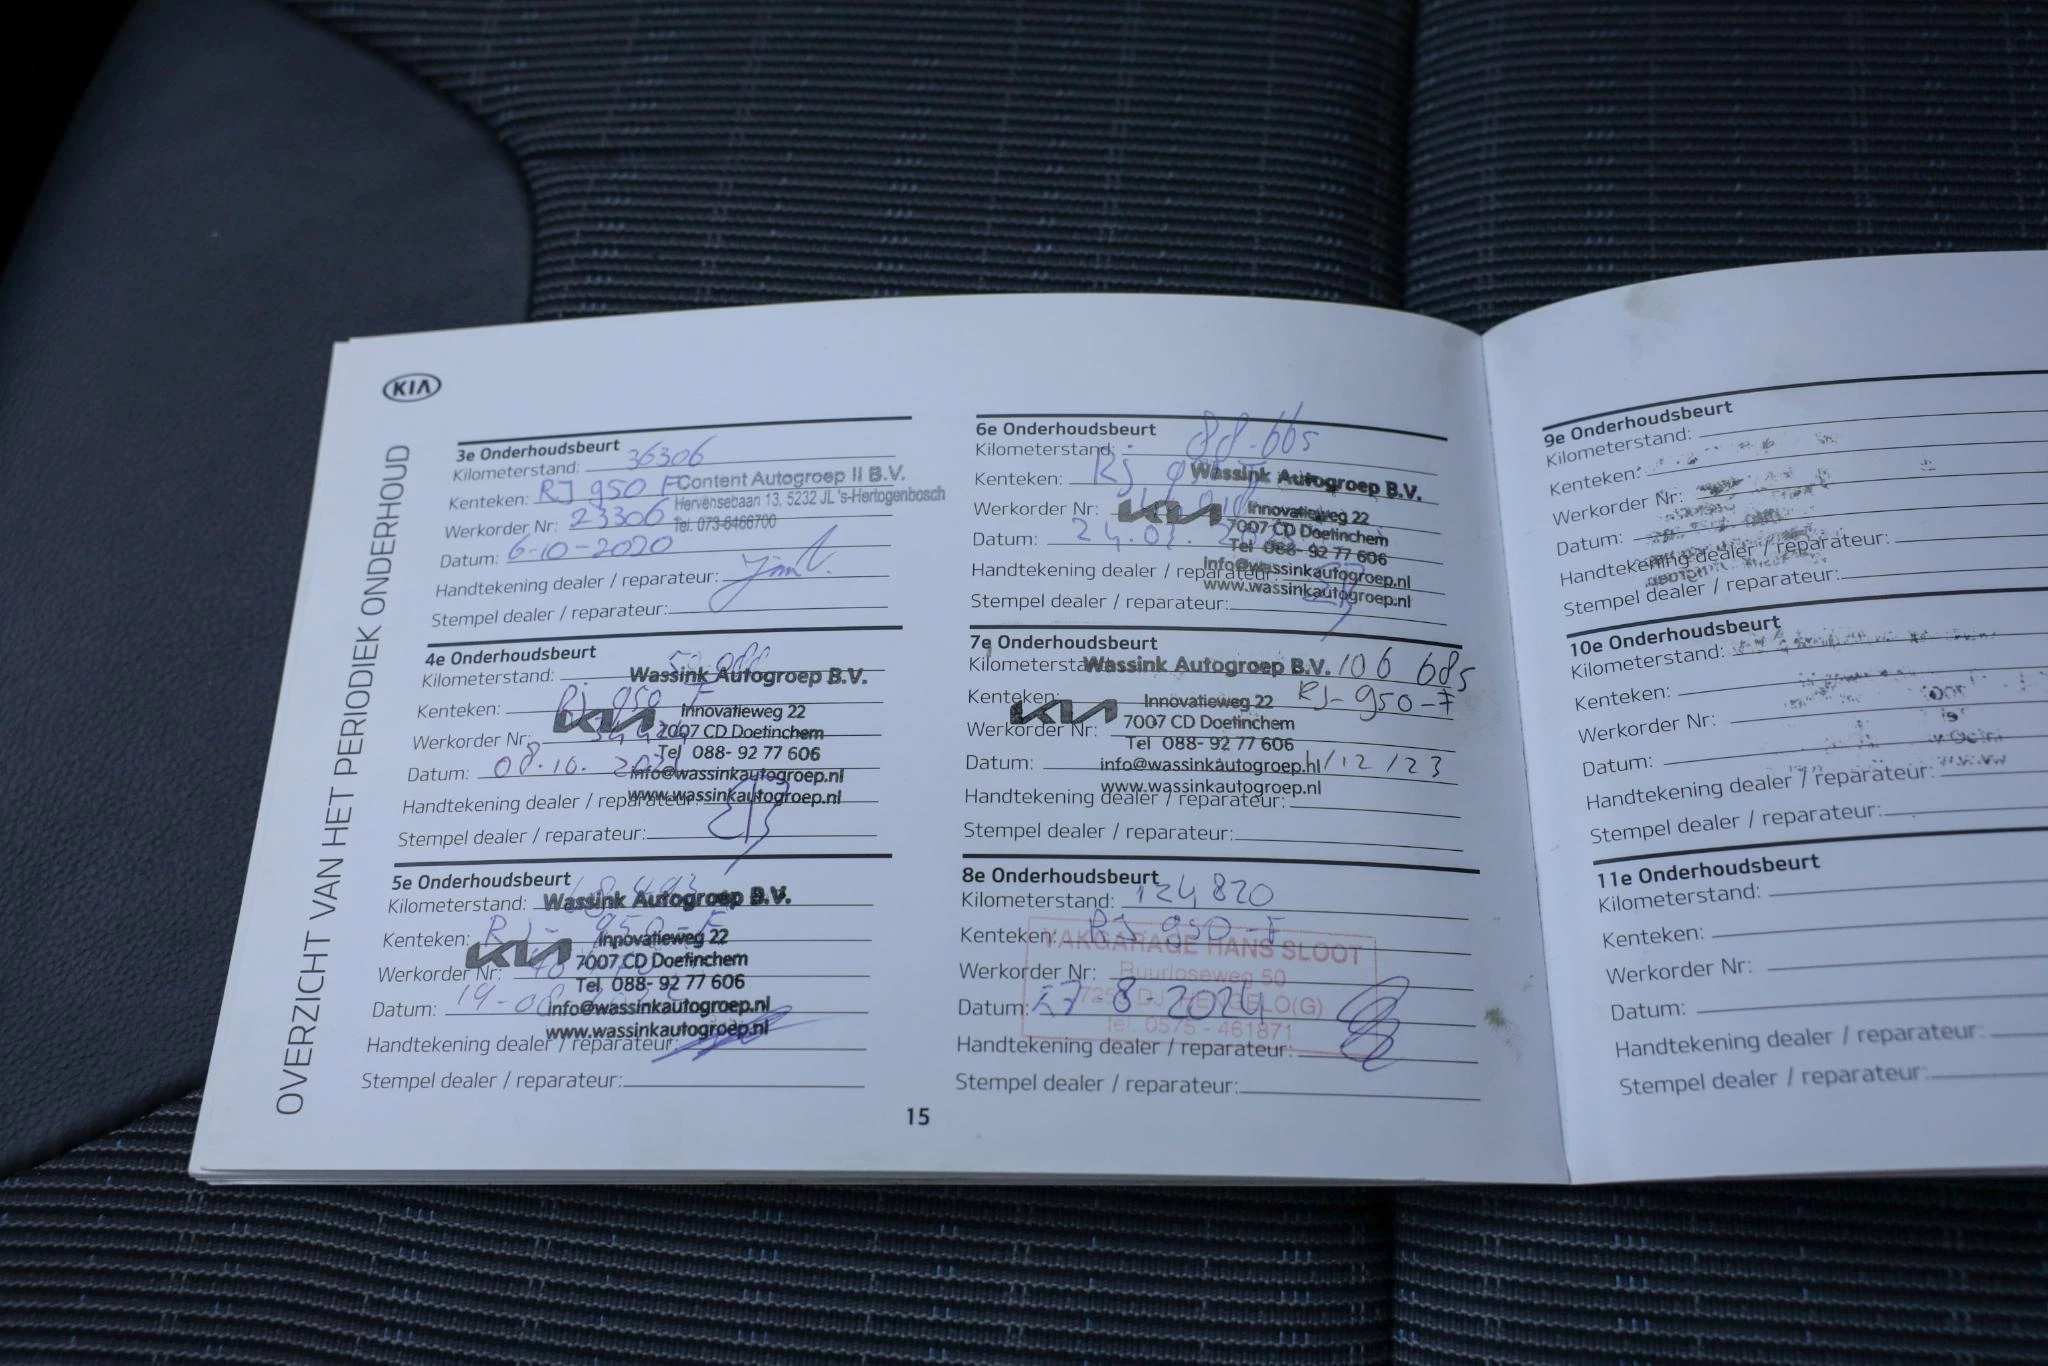 KIA
OVERZICHT VAN HET PERIODIEK ONDERHOUD
3e Onderhoudsbeurt
Kilometerstand: 36306
Content Autogroep II B.V.
Kenteken: RJ 950 F
Hervensebaan 13, 5232 JL 's-Hertogenbosch
Werkorder Nr: 23306
Tel. 073-6466700
Datum: 6-10-2020
Handtekening dealer / reparateur:
Stempel dealer / reparateur:
4e Onderhoudsbeurt
Kilometerstand:
Wassink Autogroep B.V.
Kenteken: RJ 950 F
KIA
Innovatieweg 22
Werkorder Nr:
7007 CD Doetinchem
Tel 088- 92 77 606
Datum: 08.10.
info@wassinkautogroep.nl
www.wassinkautogroep.nl
Handtekening dealer / reparateur:
Stempel dealer / reparateur:
5e Onderhoudsbeurt
Kilometerstand:
Wassink Autogroep B.V.
Kenteken: RJ- 950-F
KIA
Innovatieweg 22
7007 CD Doetinchem
Werkorder Nr:
Tel 088- 92 77 606
Datum: 19-08
info@wassinkautogroep.nl
www.wassinkautogroep.nl
Handtekening dealer / reparateur:
Stempel dealer / reparateur:
15
6e Onderhoudsbeurt
Kilometerstand: 88.665
Wassink Autogroep B.V.
Kenteken: RJ
KIA
Werkorder Nr:
Innovatieweg 22
7007 CD Doetinchem
Datum:
Tel 088- 92 77 606
info@wassinkautogroep.nl
www.wassinkautogroep.nl
Handtekening dealer / reparateur:
Stempel dealer / reparateur:
7e Onderhoudsbeurt
Kilometerstand: 106 685
Wassink Autogroep B.V.
Kenteken: RJ-950-F
KIA
Innovatieweg 22
7007 CD Doetinchem
Werkorder Nr:
Tel 088- 92 77 606
Datum: /12/23
info@wassinkautogroep.nl
www.wassinkautogroep.nl
Handtekening dealer / reparateur:
Stempel dealer / reparateur:
8e Onderhoudsbeurt
Kilometerstand: 124820
Kenteken: RJ 950-F
VAKGARAGE HANS SLOOT
Ruurloseweg 50
Werkorder Nr:
HENGELO(G)
Datum: 27-8-2024
Tel. 0575 - 461871
Handtekening dealer / reparateur:
Stempel dealer / reparateur:
9e Onderhoudsbeurt
Kilometerstand:
Kenteken:
Werkorder Nr:
Datum:
Handtekening dealer / reparateur:
Stempel dealer / reparateur:
10e Onderhoudsbeurt
Kilometerstand:
Kenteken:
Werkorder Nr:
Datum:
Handtekening dealer / reparateur:
Stempel dealer / reparateur:
11e Onderhoudsbeurt
Kilometerstand:
Kenteken:
Werkorder Nr:
Datum:
Handtekening dealer / reparateur:
Stempel dealer / reparateur: